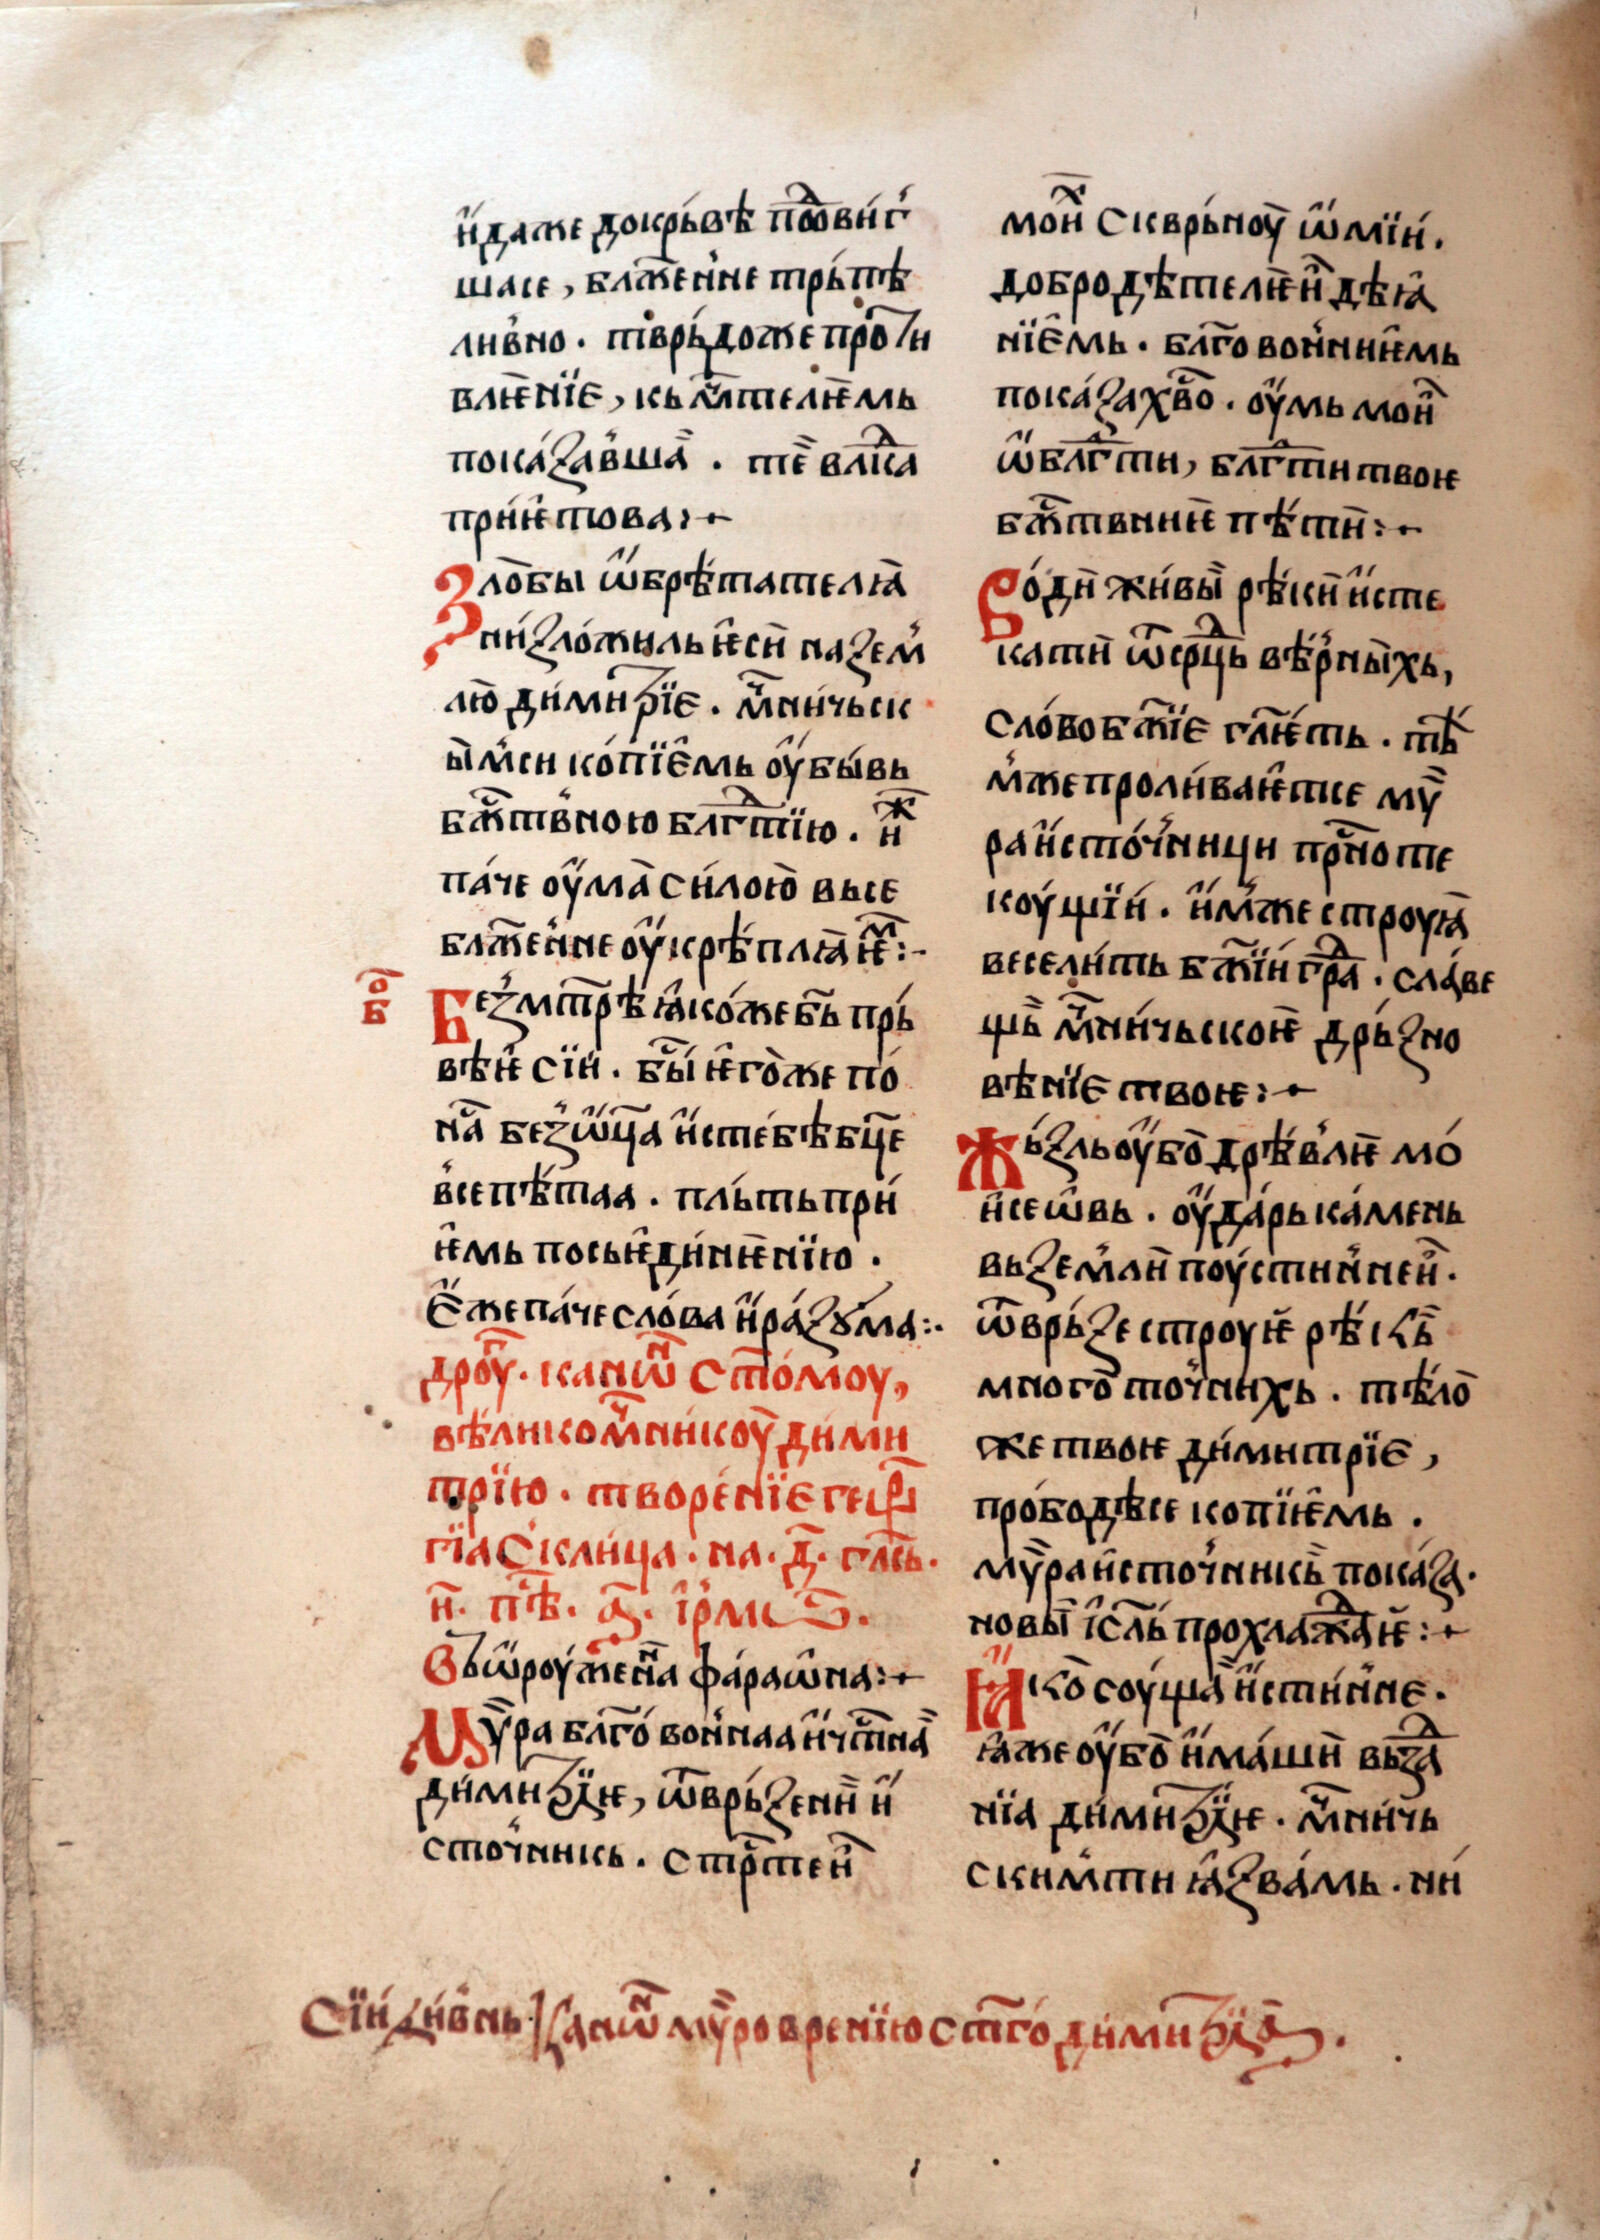 и҆́даже докры́вѣ поⷣви́г
шасе, бл҃же́нне тры́пѣ
ли́вно. твры́доже проⷮи
влѥ́нїѥ, кь м҃чтелѥмь
показа́вша̀. те̏ влⷣка
при́ѥтова:⁓
Зло́бы ѡ҆брѣ́тателꙗ̀
ни́зложиль ѥ҆сѝ назем
лю̀ ди́митрїе. м҃чни́чьск
ы҆́мси ко́пїе҆мь оу҆бы́вь
бж҃ствно́ю блгⷣтїю. нⷤ
па́че оу҆ма̀ си́лою̀ высе
бл҃же́нне оу҆крѣ́плꙗѥⷨ:⁓
б҃о
Без́мт҃рѣ ꙗ҆ко́же бь҃ пры́
вѣѥ сїи́. бы́ ѥ҆го́же по́
на̑ без́ѡ҆ц҃а и҆сте́бѣ бц҃е
все пѣ́таа. плы́ть при́
ѥ҆мь посьѥди́нѥнїю.
Е҆́же па́че сло́ва и҆́ра́зꙋма:⁓
дроуⷢ. канѡⷩ с҃то́моу,
вѣ́лико м҃чни́коу̀ ди́ми
трїю. творе́нїе геѡⷬ
гїа Скли́ца. на. д҃. гла҃сь.
и҃. пⷭ҇ѣ. а҃. і҆рмⷭ
Вьѡ҆роу́же́на фа́раѡна:⁓
Му̏ра бл҃го́ вон́наа и҆́чт҃на̏
ди́митрїѥ, ѿвры́зени̏ и҆́
сточни́кь. стрⷭте́и
мои҆ⷯ скврь́ноу̏ ѡ҆мїи́.
добро дѣ́телѥи дѣꙗ
нїе҆мь. бл҃го вон́ниѥмь
пока́захво. оу҆́мь мои҆̏
ѡ҆блгⷣти, блгⷣти твоѥ
бж҃твниѥ пѣ́ти̏:⁓
Во́ди̏ жи́вы̏ рѣ́ки̏ и҆сте
кати̏ ѿсрⷣць вѣ́рны́хь,
сло́во бж҃їе гл҃ѥ́ть. тѣ́
м́же проли́ваѥтсе му̏
ра и҆́сто́чници прⷭ҇но те
коу́щїи́. и҆́мже строуꙗ̏
весели́ть бж҃їи́ граⷣ. сла́ве
щѣ̏ м҃чни́чьскоѥ дрь́зно
вѣ́нїе твоѥ:⁓
Жь́зль оу҆бо̀ дрѣ́влѥ̀ мо́
и҆́сеѡ́вь. оу҆да́рь ка́мень
вьзе́мли̏ поу́стиннеи̏.
ѿврь́зе строуѥ̀ рѣ́кь̏
много̀ точни́хь. тѣ́ло̀
же твоѥ ди́митрїе,
про́бодѣсе копїѥ҆мь.
му̏ра и҆сто́чникь̏ пока́за.
новы̏ і҆сл҃ь прохлажⷣаѥ:⁓
Ꙗ҆ко̀ соу́ща̏ и҆сти́нне.
ꙗ҆же оу҆бо̀ и҆́ма́ши̏ вьзⷣа
нїа ди́митрїѥ. м҃чни́чь
скимти ꙗ҆зва́мь. ни́
Сїи́ ди́внь канѡⷩ му̏ро врени́ю ст҃го́ ди́митрїа.